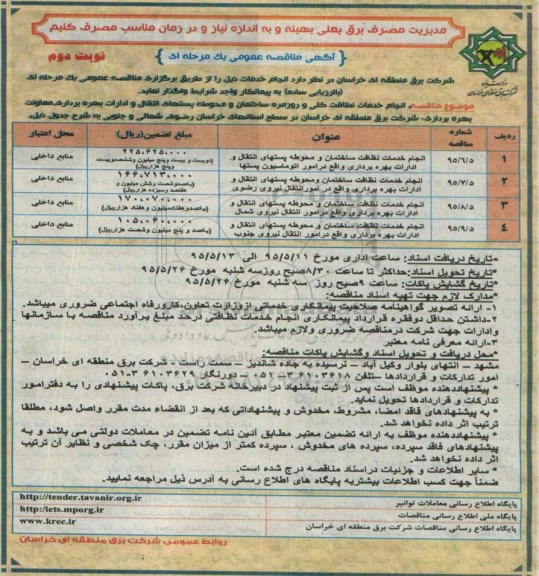 مدیریت مصرف برق یعنی بهینه و به اندازه نیاز و در زمان مناسب مصرف کنیم
آگهی مناقصه عمومی یک مرحله ای
نوبت دوم
شرکت برق منطقه ای خراسان در نظر دارد انجام خدمات ذیل را از طریق برگزاری مناقصه عمومی یک مرحله ای
(باارزیابی ساده) به پیمانکار واجد شرایط واگذار نماید.
موضوع مناقصه: انجام خدمات نظافت کلی و روزمره ساختمان و محوطه پستهای انتقال و ادارات بهره برداری،معاونت
بهره برداری- شرکت برق منطقه ای خراسان در سطح استانهای خراسان رضوی، شمالی و جنوبی به شرح جدول ذیل.
ردیف شماره مناقصه عنوان مبلغ تضمین(ریال) محل اعتبار
۱ ۹۵/۶/۵ انجام خدمات نظافت ساختمان و محوطه پستهای انتقال و ادارات بهره برداری واقع درامور اتوماسیون پستها ۲۲۵،۶۲۵،۰۰۰ (دویست و بیست وپنج میلیون وششصدوبیست وپنج هزارریال) منابع داخلی
۲ ۹۵/۷/۵ انجام خدمات نظافت ساختمان ومحوطه پستهای انتقال و ادارات بهره برداری واقع در امورانتقال نیروی رضوی ۱۶۶،۷۱۳،۰۰۰ (یکصدوشصت وشش میلیون و هفتصد وسیزده هزارریال) منابع داخلی
۳ ۹۵/۸/۵ انجام خدمات نظافت ساختمان و محوطه پستهای انتقال و ادارات بهره برداری واقع درامور انتقال نیروی شمال ۱۷۰،۰۷۰،۰۰۰ (یکصدوهفتادمیلیون و هفتاد هزارریال) منابع داخلی
۴ ۹۵/۹/۵ انجام خدمات نظافت ساختمان و محوطه پستهای انتقال و ادارات بهره برداری واقع درامور انتقال نیروی جنوب ۱۰۵،۰۶۰،۰۰۰ (یکصد و پنج میلیون وشصت هزارریال) منابع داخلی
*تاریخ دریافت اسناد: ساعت اداری مورخ ۹۵/۵/۱۱ الی ۹۵/۵/۱۳
*تاریخ تحویل اسناد:حداکثر تا ساعت ۸/۳۰صبح روزسه شنبه مورخ ۹۵/۵/۲۶
*تاریخ گشایش پاکات: ساعت ۹صبح روز سه شنبه مورخ ۹۵/۵/۲۶
*مدارک لازم جهت تهیه اسناد مناقصه:
۱- ارائه تصویر گواهینامه صلاحیت پیمانکاری خدماتی ازوزارت تعاون،کارورفاه اجتماعی ضروری میباشد.
۲-داشتن حداقل دوفقره قرارداد پیمانکاری انجام خدمات نظافتی درحد مبلغ برآورد مناقصه با سازمانها
وادارات جهت شرکت درمناقصه ضروری ولازم میباشد.
۳-ارائه معرفی نامه معتبر
*محل دریافت و تحویل اسناد وگشایش پاکات مناقصه:
مشهد – انتهای بلوار وکیل آباد – نرسیده به جاده شاندیز – سمت راست - شرکت برق منطقه ای خراسان –
امور تدارکات و قراردادها –تلفن ۳۶۱۰۳۶۱۸-۰۵۱ - دورنگار ۳۶۱۰۳۶۲۹-۰۵۱
*پیشنهاددهنده موظف است پس از ثبت پیشنهاد در دبیرخانه شرکت برق، پاکات پیشنهادی را به دفترامور
تدارکات و قراردادها تحویل نماید.
* به پیشنهادهای فاقد امضا، مشروط، مخدوش و پیشنهاداتی که بعد از انقضاء مدت مقرر واصل شود، مطلقا
ترتیب اثر داده نخواهد شد.
* پیشنهاددهنده موظف به ارائه تضمین معتبر مطابق آئین نامه تضمین در معاملات دولتی می باشد و به
پیشنهادهای فاقد سپرده، سپرده های مخدوش ، سپرده کمتر از میزان مقرر، چک شخصی و نظایر آن ترتیب
اثر داده نخواهد شد.
* سایر اطلاعات و جزئیات دراسناد مناقصه درج شده است.
ضمناً جهت کسب اطلاعات بیشتربه پایگاه های اطلاع رسانی به آدرس ذیل مراجعه نمایید.
پایگاه اطلاع رسانی معاملات توانیر http://tender.tavanir.org.ir
پایگاه ملی اطلاع رسانی مناقصات http:/iets.mporg.ir
پایگاه اطلاع رسانی مناقصات شرکت برق منطقه ای خراسان www.krec.ir
روابط عمومی شرکت برق منطقه ای خراسان